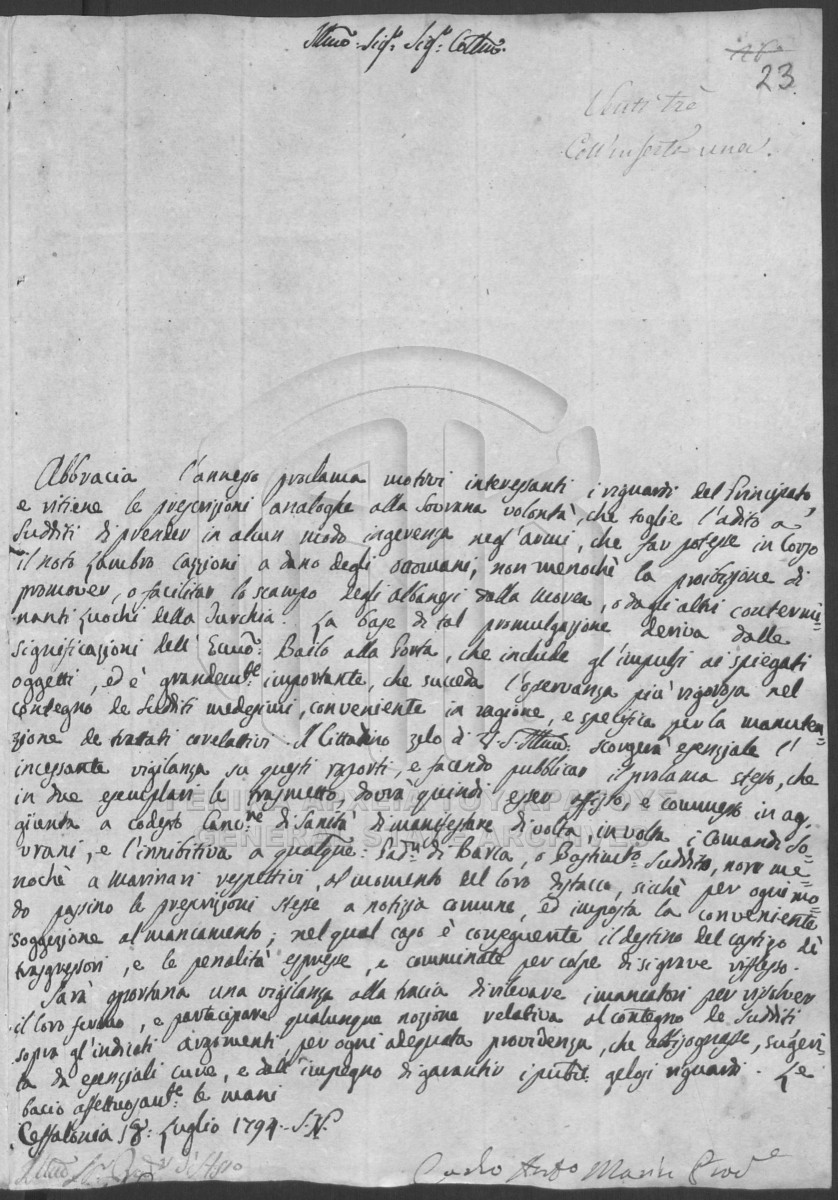 Illmo: Sigr: Sigr: Collmo:
23
Venti trè
Coll'inserta una.
Abbracia l'annesso proclama motivi interessanti i riguardi del Principato,
e ritiene le prescrizioni analoghe alla Sovrana volontà, che toglie l'adito a
Sudditi di prender in alcun modo ingerenza negl'armi, che far potesse in Corso
il noto Lambro Cazzioni a dano degli ottomani, non menochè la proibizione di
promover, o facilitar lo scampo degli albanesi dalla Morea, o dagli altri contermi-
nanti Luochi della Turchia. La base di tal promulgazione deriva dalle
significazioni dell' Eccmo: Bailo alla Porta, che include gl'impulsi ai spiegati
oggetti, ed è grandemte: importante, che succeda l'osservanza più rigorosa nel
contegno de Sudditi medesimi, conveniente in ragione, e specifica per la manuten-
zione de trattati correlattivi. Il Cittadino zelo di V. S. Illma: scorgerà essenziale l'
incessante vigilanza su questi raporti, e facendo pubblicar il proclama stesso, che
in due esemplari le trasmetto, dovrà quindi esser affisso, e commesso in ag-
giunta a codesto Cancre: di Sanità di manifestare di volta, in volta i Comandi So-
vrani, e l'innibitiva a qualque: Padrn: di Barca, o Bastimto: Suddito, non me-
nochè a marinari respettivi, al momento del loro distacco, sicchè per ogni mo-
do passino le prescrizioni stesse a notizia comune, ed imposta la conveniente
soggezione al mancamento; nel qual caso è conseguente il destino del castigo dè
trasgressori, e le penalità espresse, e comminate per colpe di sì grave riflesso.
Sarà oportuna una vigilanza alla traccia di rilevare i mancatori per risolver
il loro fermo, e partecipare qualunque nozione relativa al contegno de Sudditi
sopra gl'indicati argomenti, per ogni adequata providenza, che abbisognasse, sugeri-
ta da essenziali cure, e dall'impegno di garantir i pubci: gelosi riguardi. Le
bacio affettuosamte: le mani
Ceffalonia 18: Luglio 1794. S. N.
Illmo Sr: Provr: d'Asso
Marin Prove